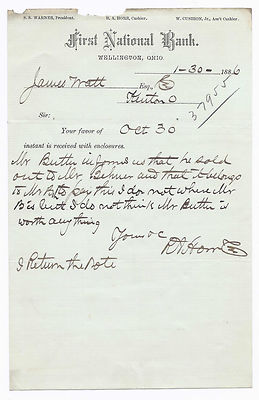 S. S. WARNER, President. R. A. HORR, Cashier. W. CUSHION, Jr., Ass't Cashier.
First National Bank.
WELLINGTON, OHIO.
1-30- 1886
James Watt Esq.,
O
37955
Sir:
Your favor of Oct 30
instant is received with enclosures.
Mr Butler informs us that he sold
out to Mr. and that it belongs
to Mr to pay this I do not where Mr
B is but I do not think Mr Butler is
worth anything
Yours &c
R A Horr
I Return the Note